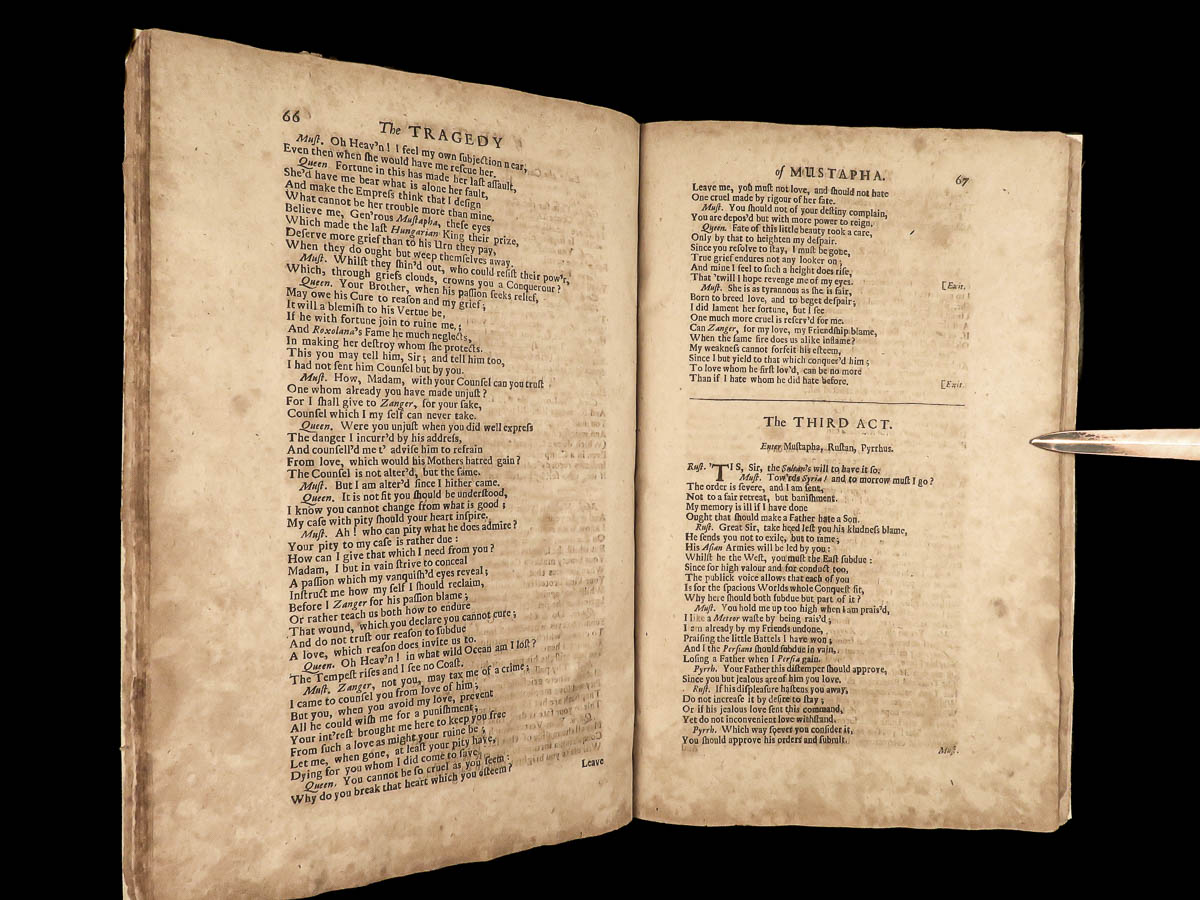 66
The TRAGEDY
Muſt. Oh Heav'n! I feel my own ſubjection near,
Even then when ſhe would have me reſcue her.
Queen Fortune in this has made her laſt aſſault,
She'd have me bear what is alone her fault,
And make the Empreſs think that I deſign
What cannot be her trouble more than mine.
Believe me, Gen'rous Muſtapha, theſe eyes
Which made the laſt Hungarian King their prize,
Deſerve more grief than to his Urn they pay,
When they do ought but weep themſelves away.
Muſt. Whilſt they ſhin'd out, who could reſiſt their pow'r,
Which, through griefs clouds, crowns you a Conquerour?
Queen. Your Brother, when his paſſion ſeeks relief,
May owe his Cure to reaſon and my grief;
It will a blemiſh to his Vertue be,
If he with fortune join to ruine me,;
And Roxolana's Fame he much neglects,
In making her deſtroy whom ſhe protects.
This you may tell him, Sir; and tell him too,
I had not ſent him Counſel but by you.
Muſt. How, Madam, with your Counſel can you truſt
One whom already you have made unjuſt?
For I ſhall give to Zanger, for your ſake,
Counſel which I my ſelf can never take.
Queen. Were you unjuſt when you did well expreſs
The danger I incurr'd by his addreſs,
And counſell'd me t' adviſe him to refrain
From love, which would his Mothers hatred gain?
The Counſel is not alter'd, but the ſame.
Muſt. But I am alter'd ſince I hither came.
Queen. It is not fit you ſhould be underſtood,
I know you cannot change from what is good;
My caſe with pity ſhould your heart inſpire.
Muſt. Ah! who can pity what he does admire?
Your pity to my caſe is rather due:
How can I give that which I need from you?
Madam, I but in vain ſtrive to conceal
A paſſion which my vanquiſh'd eyes reveal;
Inſtruct me how my ſelf I ſhould reclaim,
Before I Zanger for his paſſion blame;
Or rather teach us both how to endure
That wound, which you declare you cannot cure;
And do not truſt our reaſon to ſubdue
A love, which reaſon does invite us to.
Queen. Oh Heav'n! in what wild Ocean am I loſt?
The Tempeſt riſes and I ſee no Coaſt.
Muſt. Zanger, not you, may tax me of a crime;
I came to counſel you from love of him;
But you, when you avoid my love, prevent
All he could wiſh me for a puniſhment;
Your int'reſt brought me here to keep you free
From ſuch a love as might your ruine be;
Let me, when gone, at leaſt your pity have,
Dying for you whom I did come to ſave.
Queen. You cannot be ſo cruel as you ſeem:
Why do you break that heart which you eſteem?
Leave
of MUSTAPHA.
67
Leave me, you muſt not love, and ſhould not hate
One cruel made by rigour of her fate.
Muſt. You ſhould not of your deſtiny complain,
You are depos'd but with more power to reign.
Queen. Fate of this little beauty took a care,
Only by that to heighten my deſpair.
Since you reſolve to ſtay, I muſt be gone,
True grief endures not any looker on;
And mine I feel to ſuch a height does riſe,
That 'twill I hope revenge me of my eyes. [Exit.
Muſt. She is as tyrannous as ſhe is fair,
Born to breed love, and to beget deſpair;
I did lament her fortune, but I ſee
One much more cruel is reſerv'd for me.
Can Zanger, for my love, my Friendſhip blame,
When the ſame fire does us alike inflame?
My weakneſs cannot forfeit his eſteem,
Since I but yield to that which conquer'd him;
To love whom he firſt lov'd, can be no more
Than if I hate whom he did hate before. [Exit.
The THIRD ACT.
Enter Muſtapha, Ruſtan, Pyrrhus.
Ruſt. 'TIS, Sir, the Sultan's will to have it ſo.
Muſt. Tow'rds Syria! and to morrow muſt I go?
The order is ſevere, and I am ſent,
Not to a fair retreat, but baniſhment.
My memory is ill if I have done
Ought that ſhould make a Father hate a Son.
Ruſt. Great Sir, take heed left you his kindneſs blame,
He ſends you not to exile, but to fame;
His Aſian Armies will be led by you:
Whilſt he the Weſt, you muſt the Eaſt ſubdue:
Since for high valour and for conduct too,
The publick voice allows that each of you
Is for the ſpacious Worlds whole Conqueſt fit,
Why here ſhould both ſubdue but part of it?
Muſt. You hold me up too high when I am prais'd,
I like a Meteor waſte by being rais'd;
I am already by my Friends undone,
Praiſing the little Battels I have won;
And I the Perſians ſhould ſubdue in vain,
Loſing a Father when I Perſia gain.
Pyrrh. Your Father this diſtemper ſhould approve,
Since you but jealous are of him you love.
Ruſt. If his diſpleaſure haſtens you away,
Do not increaſe it by deſire to ſtay;
Or if his jealous love ſent this command,
Yet do not inconvenient love withſtand.
Pyrrh. Which way ſoever you conſider it,
You ſhould approve his orders and ſubmit.
Muſt.